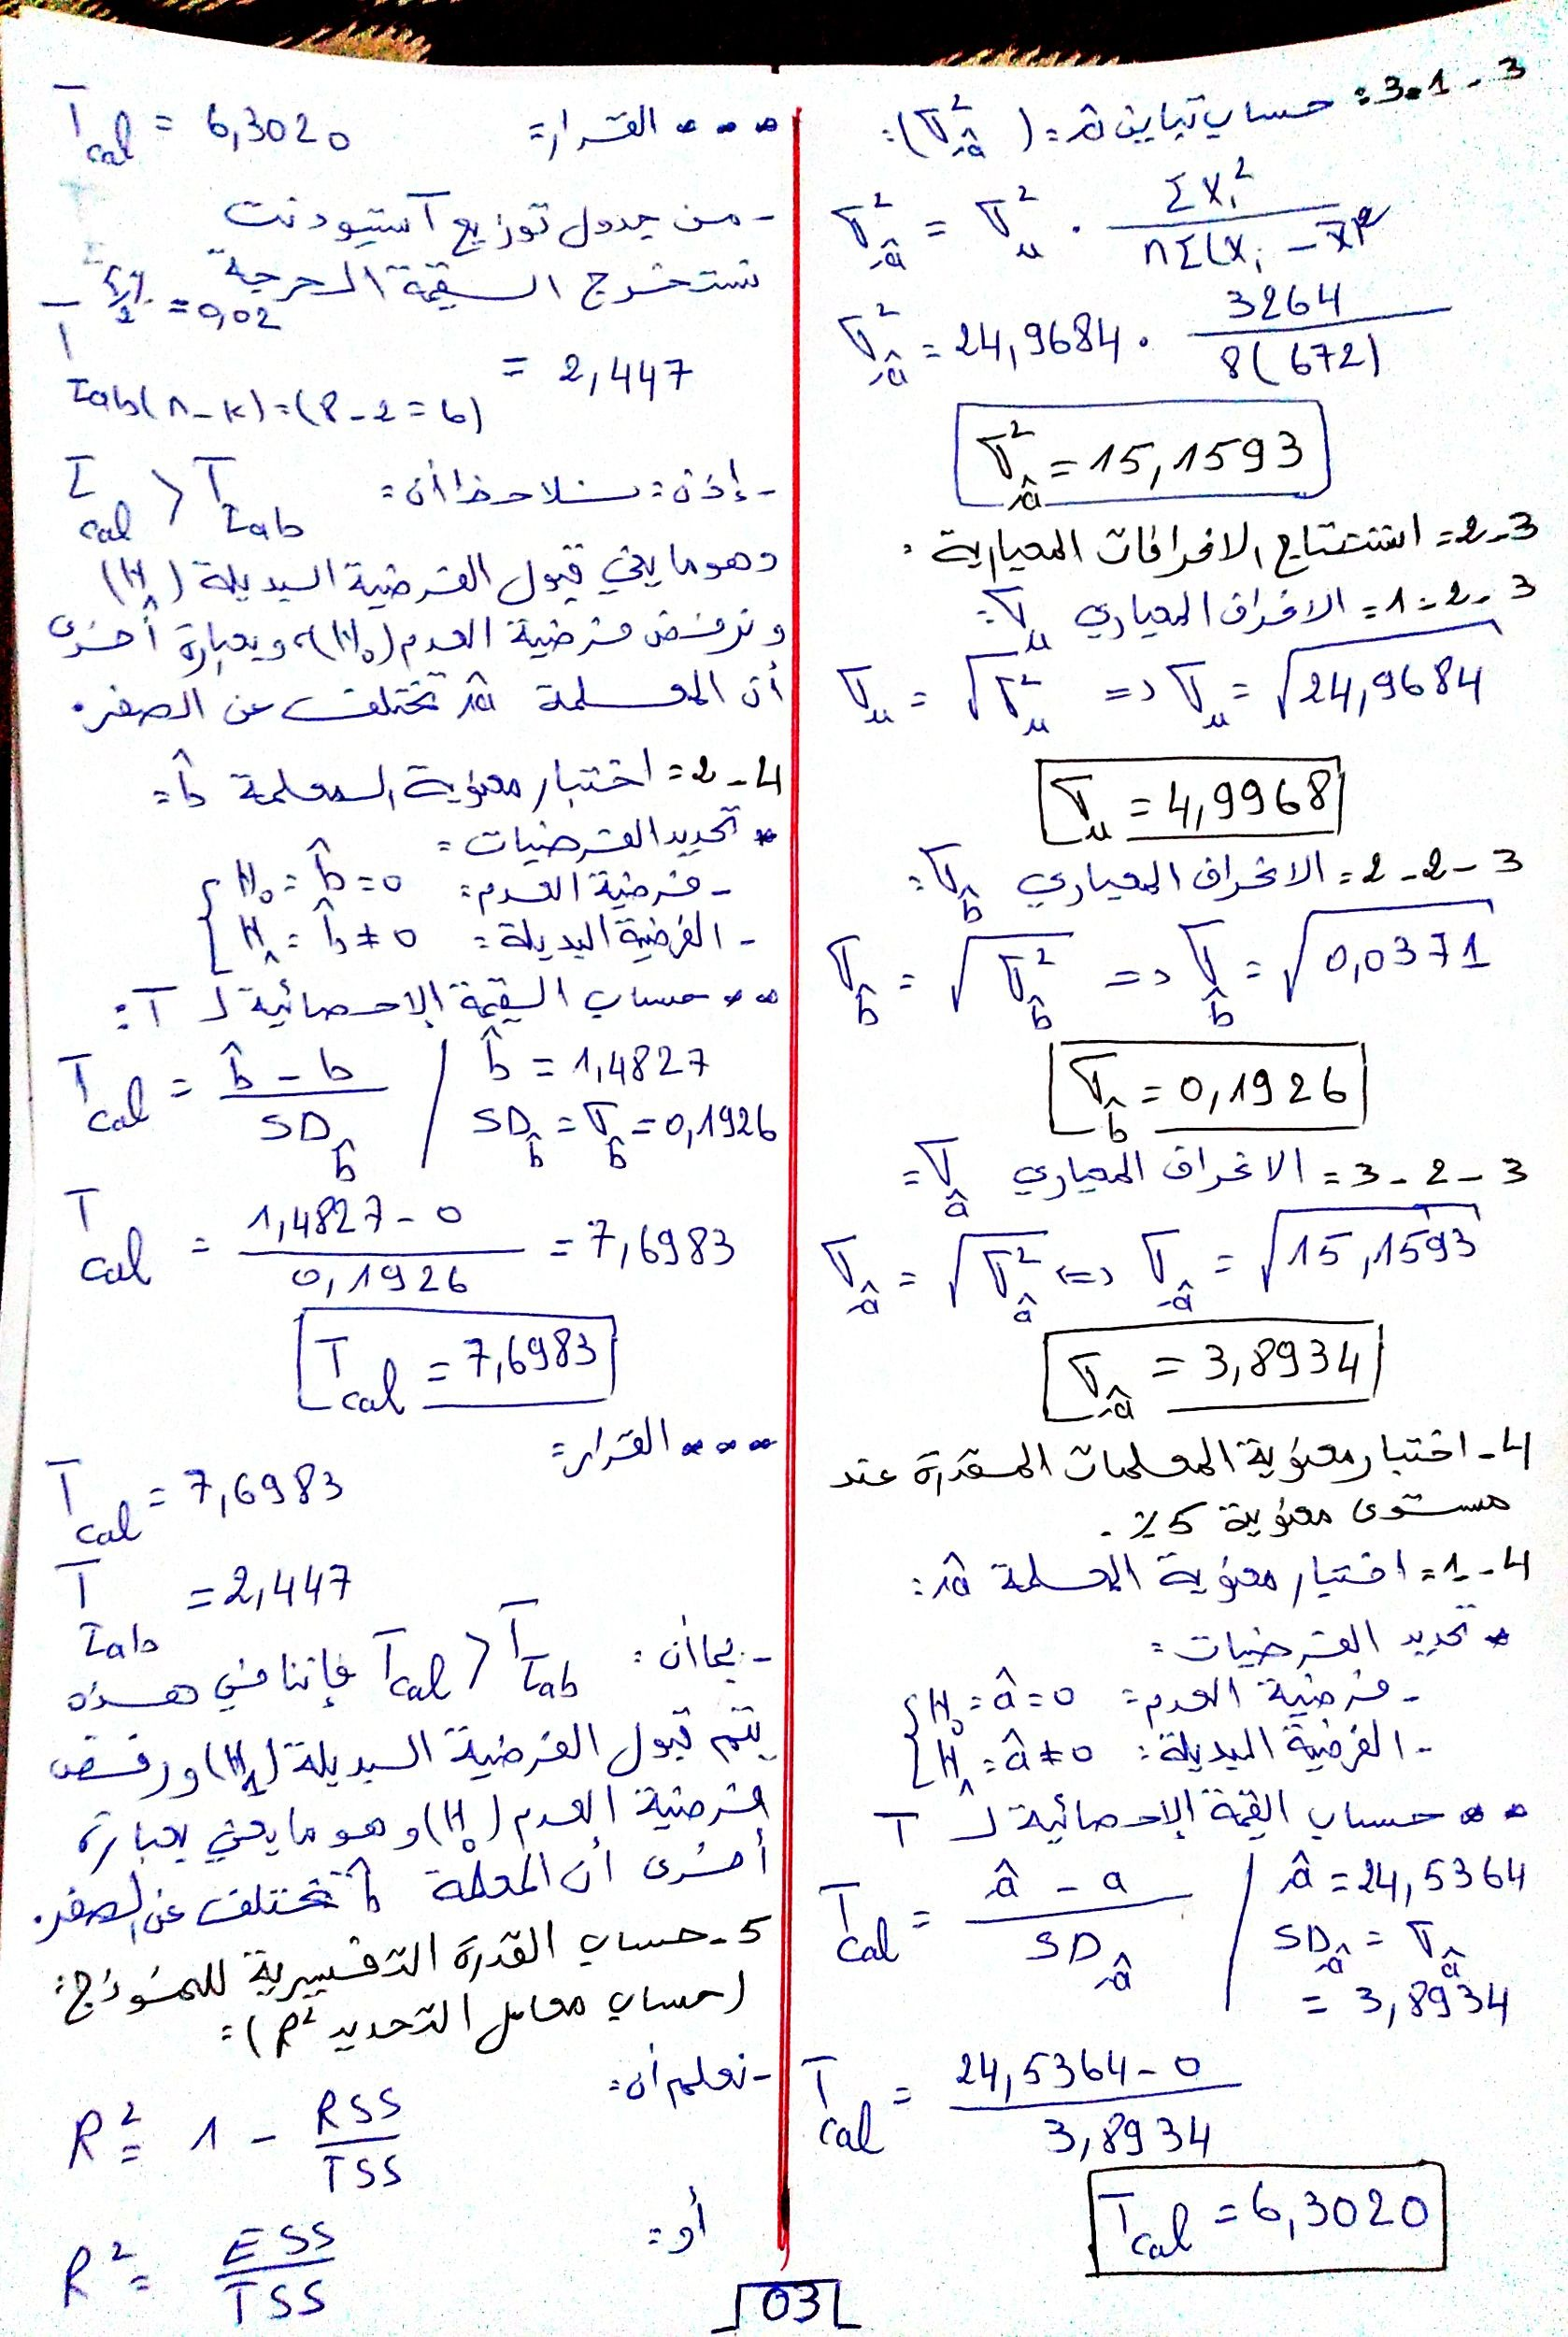 3-1-3: حساب تباين â: (σ²â):
σ²â = σ²u · ΣXi² / nΣ(Xi - X̄)²
σ²â = 24,9684 · 3264 / 8(672)
σ²â = 15,1593
3-2= استنتاج الانحرافات المعيارية:
3-2-1= الانحراف المعياري σu:
σu = √σ²u => σu = √24,9684
σu = 4,9968
3-2-2= الانحراف المعياري σb̂:
σb̂ = √σ²b̂ => σb̂ = √0,0371
σb̂ = 0,1926
3-2-3= الانحراف المعياري σâ=
σâ = √σ²â <=> σâ = √15,1593
σâ = 3,8934
4- اختبار معنوية المعلمات المقدرة عند
مستوى معنوية 5٪.
4-1= اختبار معنوية المعلمة â:
* تحديد الفرضيات=
- فرضية العدم= H₀: â = 0
- الفرضية البديلة: H₁: â ≠ 0
** حساب القيمة الإحصائية لـ T
Tcal = â - a / SDâ / â = 24,5364
SDâ = σâ
= 3,8934
Tcal = 24,5364 - 0 / 3,8934
Tcal = 6,3020
*** القرار= Tcal = 6,3020
- من جدول توزيع ستيودنت
نستخرج القيمة الحرجة
T 5٪/2 = 0,02
Tab(n-k)=(8-2=6) = 2,447
- إذن: نلاحظ أن= Tcal > Ttab
وهو ما يعني قبول الفرضية البديلة (H₁)
ونرفض فرضية العدم (H₀)، وبعبارة أخرى
أن المعلمة â تختلف عن الصفر.
4-2= اختبار معنوية المعلمة b̂=
* تحديد الفرضيات=
- فرضية العدم= H₀: b̂ = 0
- الفرضية البديلة= H₁: b̂ ≠ 0
** حساب القيمة الإحصائية لـ T:
Tcal = b̂ - b / SDb̂ / b̂ = 1,4827
SDb̂ = σb̂ = 0,1926
Tcal = 1,4827 - 0 / 0,1926 = 7,6983
Tcal = 7,6983
*** القرار=
Tcal = 7,6983
Ttab = 2,447
- بما أن: Tcal > Ttab فإننا في هذه
يتم قبول الفرضية البديلة (H₁) ورفض
فرضية العدم (H₀) وهو ما يعني بعبارة
أخرى أن المعلمة b̂ تختلف عن الصفر.
5- حساب القدرة التفسيرية للنموذج:
(حساب معامل التحديد R²)=
- نعلم أن=
R² = 1 - RSS / TSS
أو=
R² = ESS / TSS
03